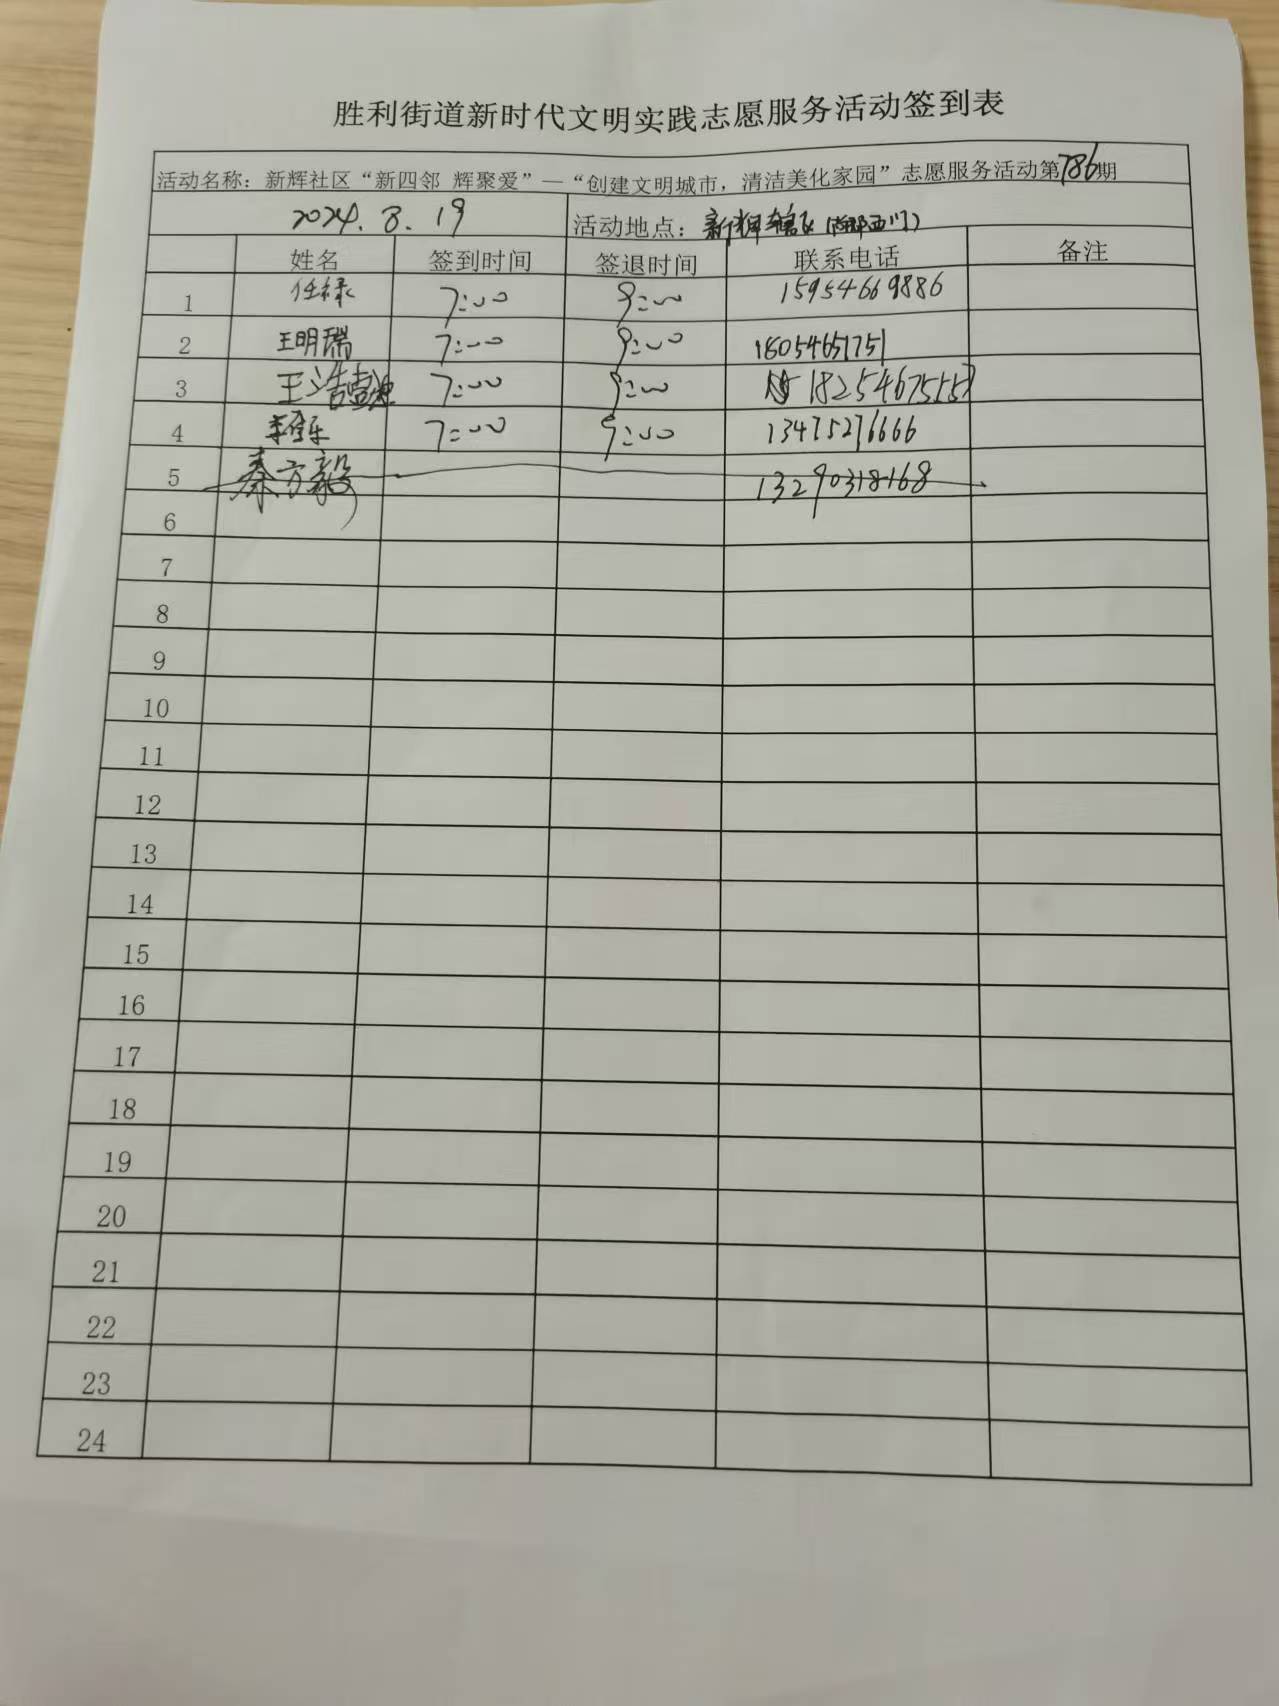 胜利街道新时代文明实践志愿服务活动签到表
活动名称：新辉社区“新四邻 辉聚爱”—“创建文明城市，清洁美化家园”志愿服务活动第786期
2024.8.19 活动地点：新辉辖区(西门)
姓名 签到时间 签退时间 联系电话 备注
1 任禄 7:00 9:00 15954669886
2 王明瑞 7:00 9:00 18054651751
3 王浩 7:00 9:00 18254675557
4 李 7:00 9:00 13475276666
5 秦方毅 13290318168
6
7
8
9
10
11
12
13
14
15
16
17
18
19
20
21
22
23
24